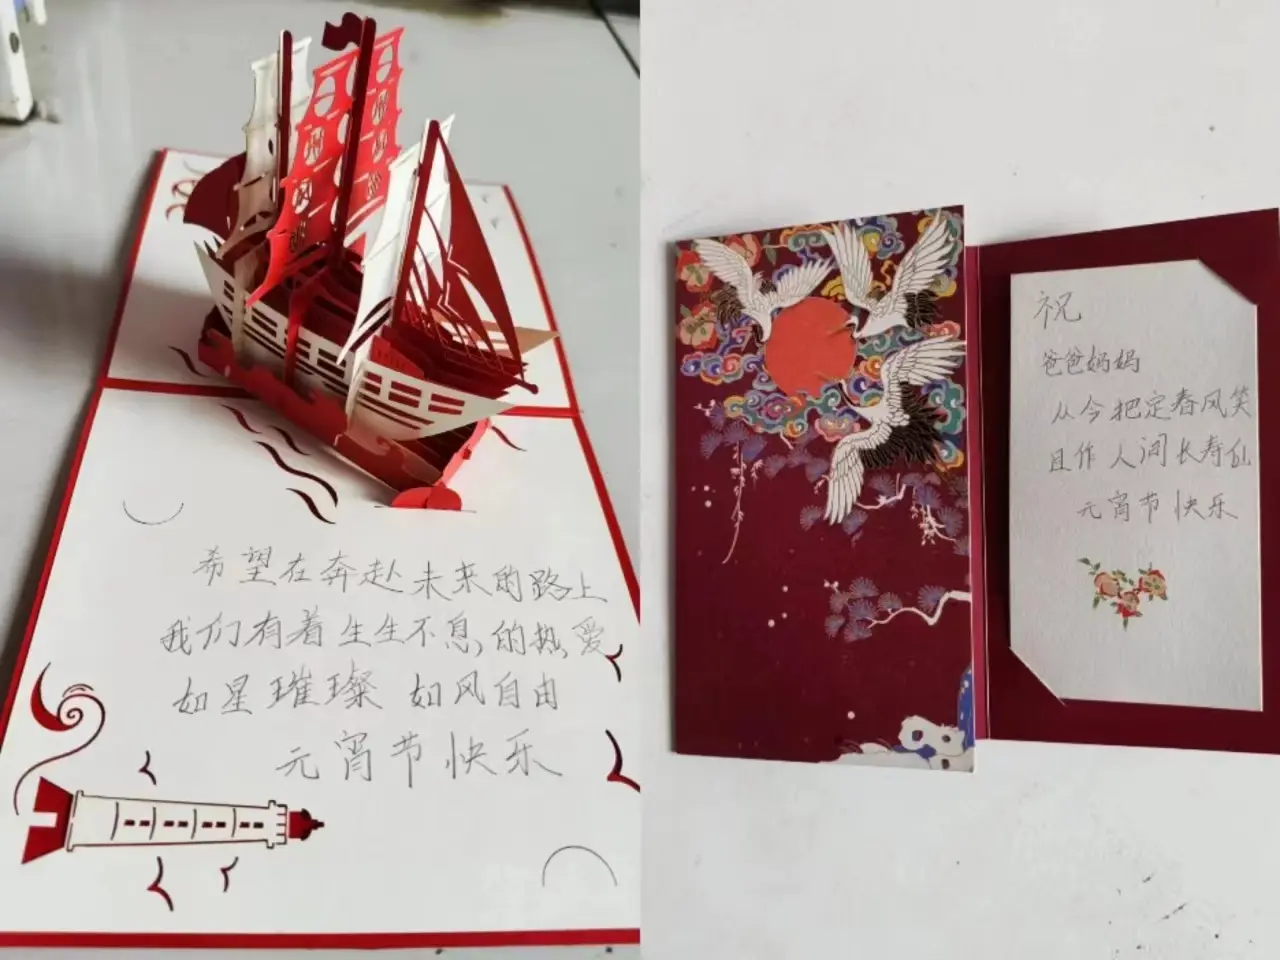 希望在奔赴未来的路上
我们有着生生不息,的热爱
如星璀璨 如风自由
元宵节快乐
祝
爸爸妈妈
从今把定春风笑
且作人间长寿仙
元宵节快乐